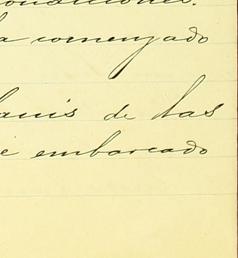 condiciones.
a comenzado
de las
e embarcado